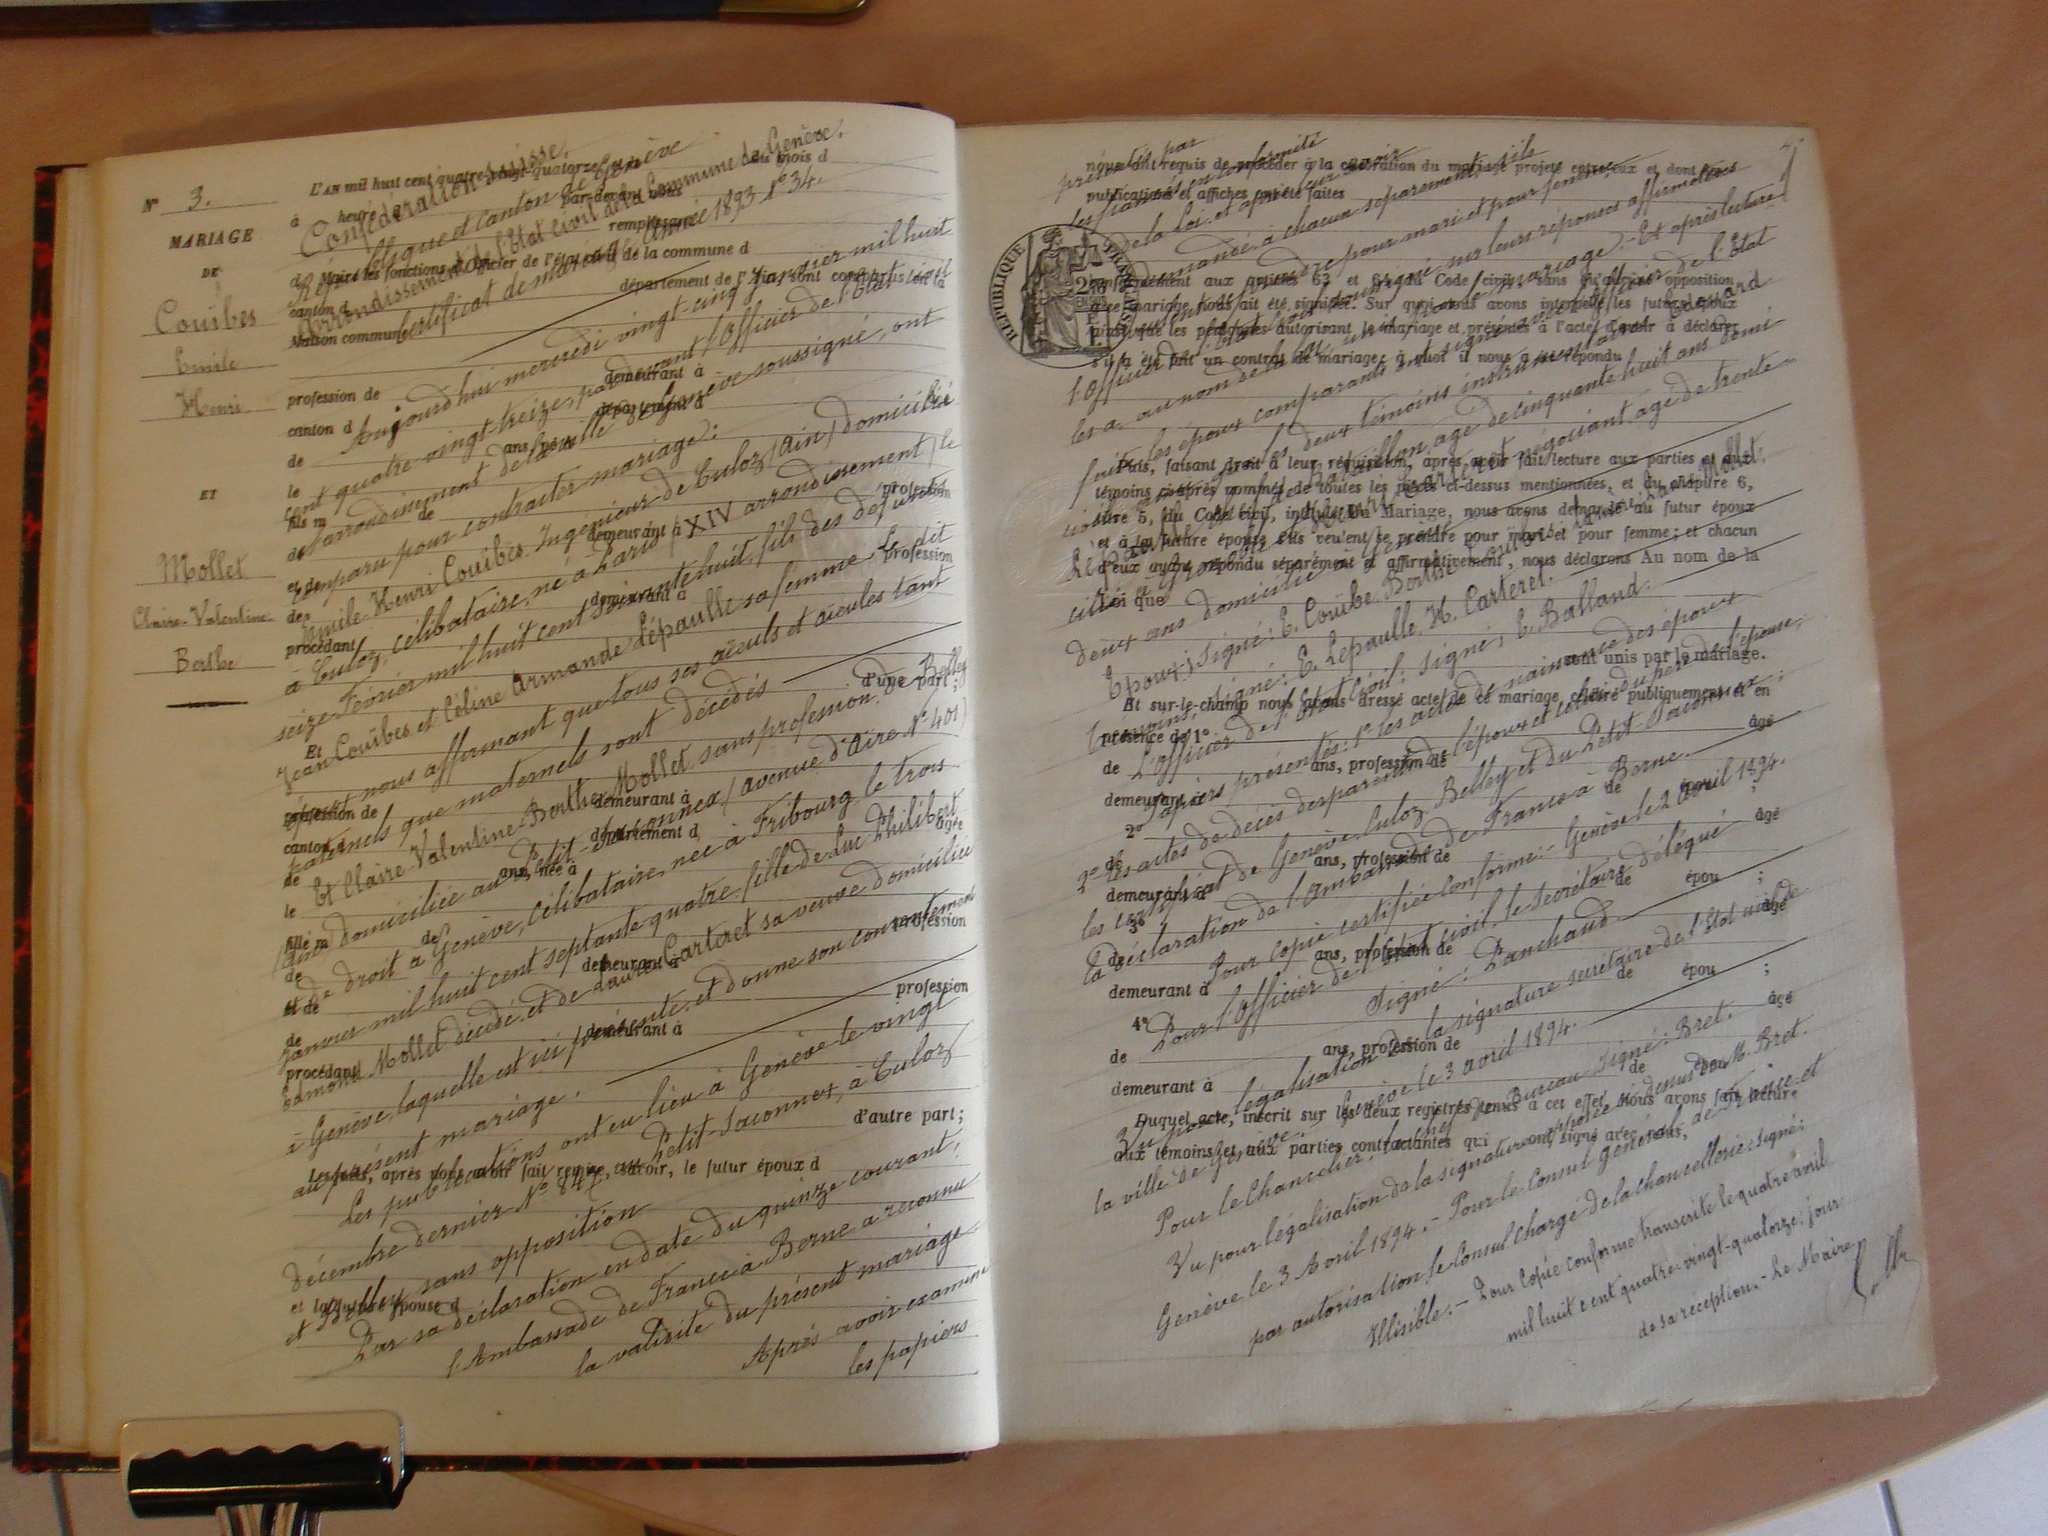 N° 3.
MARIAGE
DE
Couibes
Emile
Henri
ET
Mollet
Claire-Valentine-
Berthe
L'AN mil huit cent quatre-vingt-quatorze du mois d
à heure par-devant nous
remplissant
d Maire les fonctions d'Officier de l'état civil de la commune d
canton d département de l'Ain sont comparus en la
Maison commune
profession de demeurant à
canton d département d
de ans, né à
le
fils m de profession
de demeurant à
et de profession
de demeurant à
procédant
d'une part;
Et
profession de demeurant à
canton d département d
de ans, née à âgée
le
fille m de profession
de demeurant à
et de profession
de demeurant à
procédant
d'autre part;
Lesquels, après nous avoir fait remise, savoir, le futur époux d
et la future épouse d
Confédération Suisse.
République et Canton de Genève
Arrondissement de l'Etat Civil de la Commune de Genève.
Certificat de mariage Année 1893 N° 34.
Aujourd'hui mercredi vingt-cinq janvier mil huit
cent quatre vingt treize, par devant l'Officier de l'Etat civil
de l'arrondissement de la ville de Genève soussigné, ont
comparu pour contracter mariage:
Emile-Henri Couibes. Ingénieur de Culoz (Ain) domicilié
à Culoz, célibataire, né à Paris (XIV arrondissement) le
seize Février mil huit cent soixante huit, fils des défunts
Jean Couibes et Céline Armande Lépaulle sa femme. Le dit
époux nous affirmant que tous ses aïeuls et aïeules tant
paternels que maternels sont décédés
Et Claire-Valentine-Berthe Mollet sans profession, de Belley
(Ain) domiciliée au Petit-Saconnex (avenue d'Aïre N° 401)
et de droit à Genève, Célibataire, née à Fribourg le trois
janvier mil huit cent septante quatre, fille de Luc Philibert
Edmond Mollet décédé, et de Laure Carteret sa veuve domiciliée
à Genève, laquelle est ici présente, et donne son consentement
au présent mariage.
Les publications ont eu lieu à Genève le vingt
décembre dernier N° 847, au Petit-Saconnex, à Culoz
et Belley, sans opposition
Par sa déclaration en date du quinze courant,
l'Ambassade de France à Berne a reconnu
la validité du présent mariage
Après avoir examiné
les papiers
nous ont requis de procéder à la célébration du mariage projeté entre eux et dont
publications et affiches ont été faites
conformément aux articles 63 et 64 du Code civil, sans qu'aucune opposition
à ce mariage nous ait été signifiée. Sur quoi nous avons interpellé les futurs époux
ainsi que les personnes autorisant le mariage et présentes à l'acte d'avoir à déclarer
s'il a été fait un contrat de mariage, à quoi il nous a été répondu
Puis, faisant droit à leur réquisition, après avoir fait lecture aux parties et aux
témoins ci-après nommés de toutes les pièces ci-dessus mentionnées, et du chapitre 6,
titre 5, du Code civil, intitulé Du Mariage, nous avons demandé au futur époux
et à la future épouse s'ils veulent se prendre pour mari et pour femme; et chacun
d'eux ayant répondu séparément et affirmativement, nous déclarons Au nom de la
Loi que
sont unis par le mariage.
Et sur-le-champ nous avons dressé acte de ce mariage célébré publiquement et en
présence de 1° âgé
de ans, profession de
demeurant à de épou ;
2° âgé
de ans, profession de
demeurant à de épou ;
3° âgé
de ans, profession de
demeurant à de épou ;
4° âgé
de ans, profession de
demeurant à de épou
Duquel acte, inscrit sur les deux registres tenus à cet effet, nous avons fait lecture
aux témoins et aux parties contractantes qui ont signé avec nous,
RÉPUBLIQUE FRANÇAISE
présentés par
les fiancés en conformité
de la Loi et après leur avoir
demandé à chacun séparément, s'ils
prendre pour mari et pour femme,
sur leurs réponses affirmatives
l'Officier de l'Etat
les a au nom de la Loi, unis par le mariage. - Et après lecture
faite, les époux comparants ont signé avec l'officier de l'Etat
les deux témoins instrumentaires Edouard
Lépaulle âgé de cinquante huit ans domi
Carteret négociant, âgé de trente
deux ans domicilié
Epoux; signé: E. Couibe. Berthe Couibes née Mollet.
témoins, signé: E. Lepaulle. H. Carteret.
L'officier de l'Etat Civil: signé: E. Balland.
Papiers présentés: 1° les actes de naissance des époux
2° les actes de décès des parents de l'époux et celui du père de l'épouse;
les certificat de Genève Culoz, Belley et du Petit Saconnex;
la déclaration de l'Ambassade de France à Berne.
Pour copie certifiée conforme: Genève le 2 avril 1894.
Pour l'Officier de l'Etat civil, le Secrétaire délégué
Signé: Panchaud
Vu pour légalisation de la signature secrétaire de l'Etat civil de
la ville de Genève. Genève le 3 avril 1894.
Pour le Chancelier, le chef de Bureau signé: Bret.
Vu pour légalisation de la signature apposée ci-dessus de M. Bret.
Genève le 3 Avril 1894. - Pour le Consul Général de France et
par autorisation, le Consul chargé de la chancellerie: signé:
Illisible. - Pour Copie conforme transcrite le quatre avril
mil huit cent quatre-vingt-quatorze, jour
de sa réception. - Le Maire,